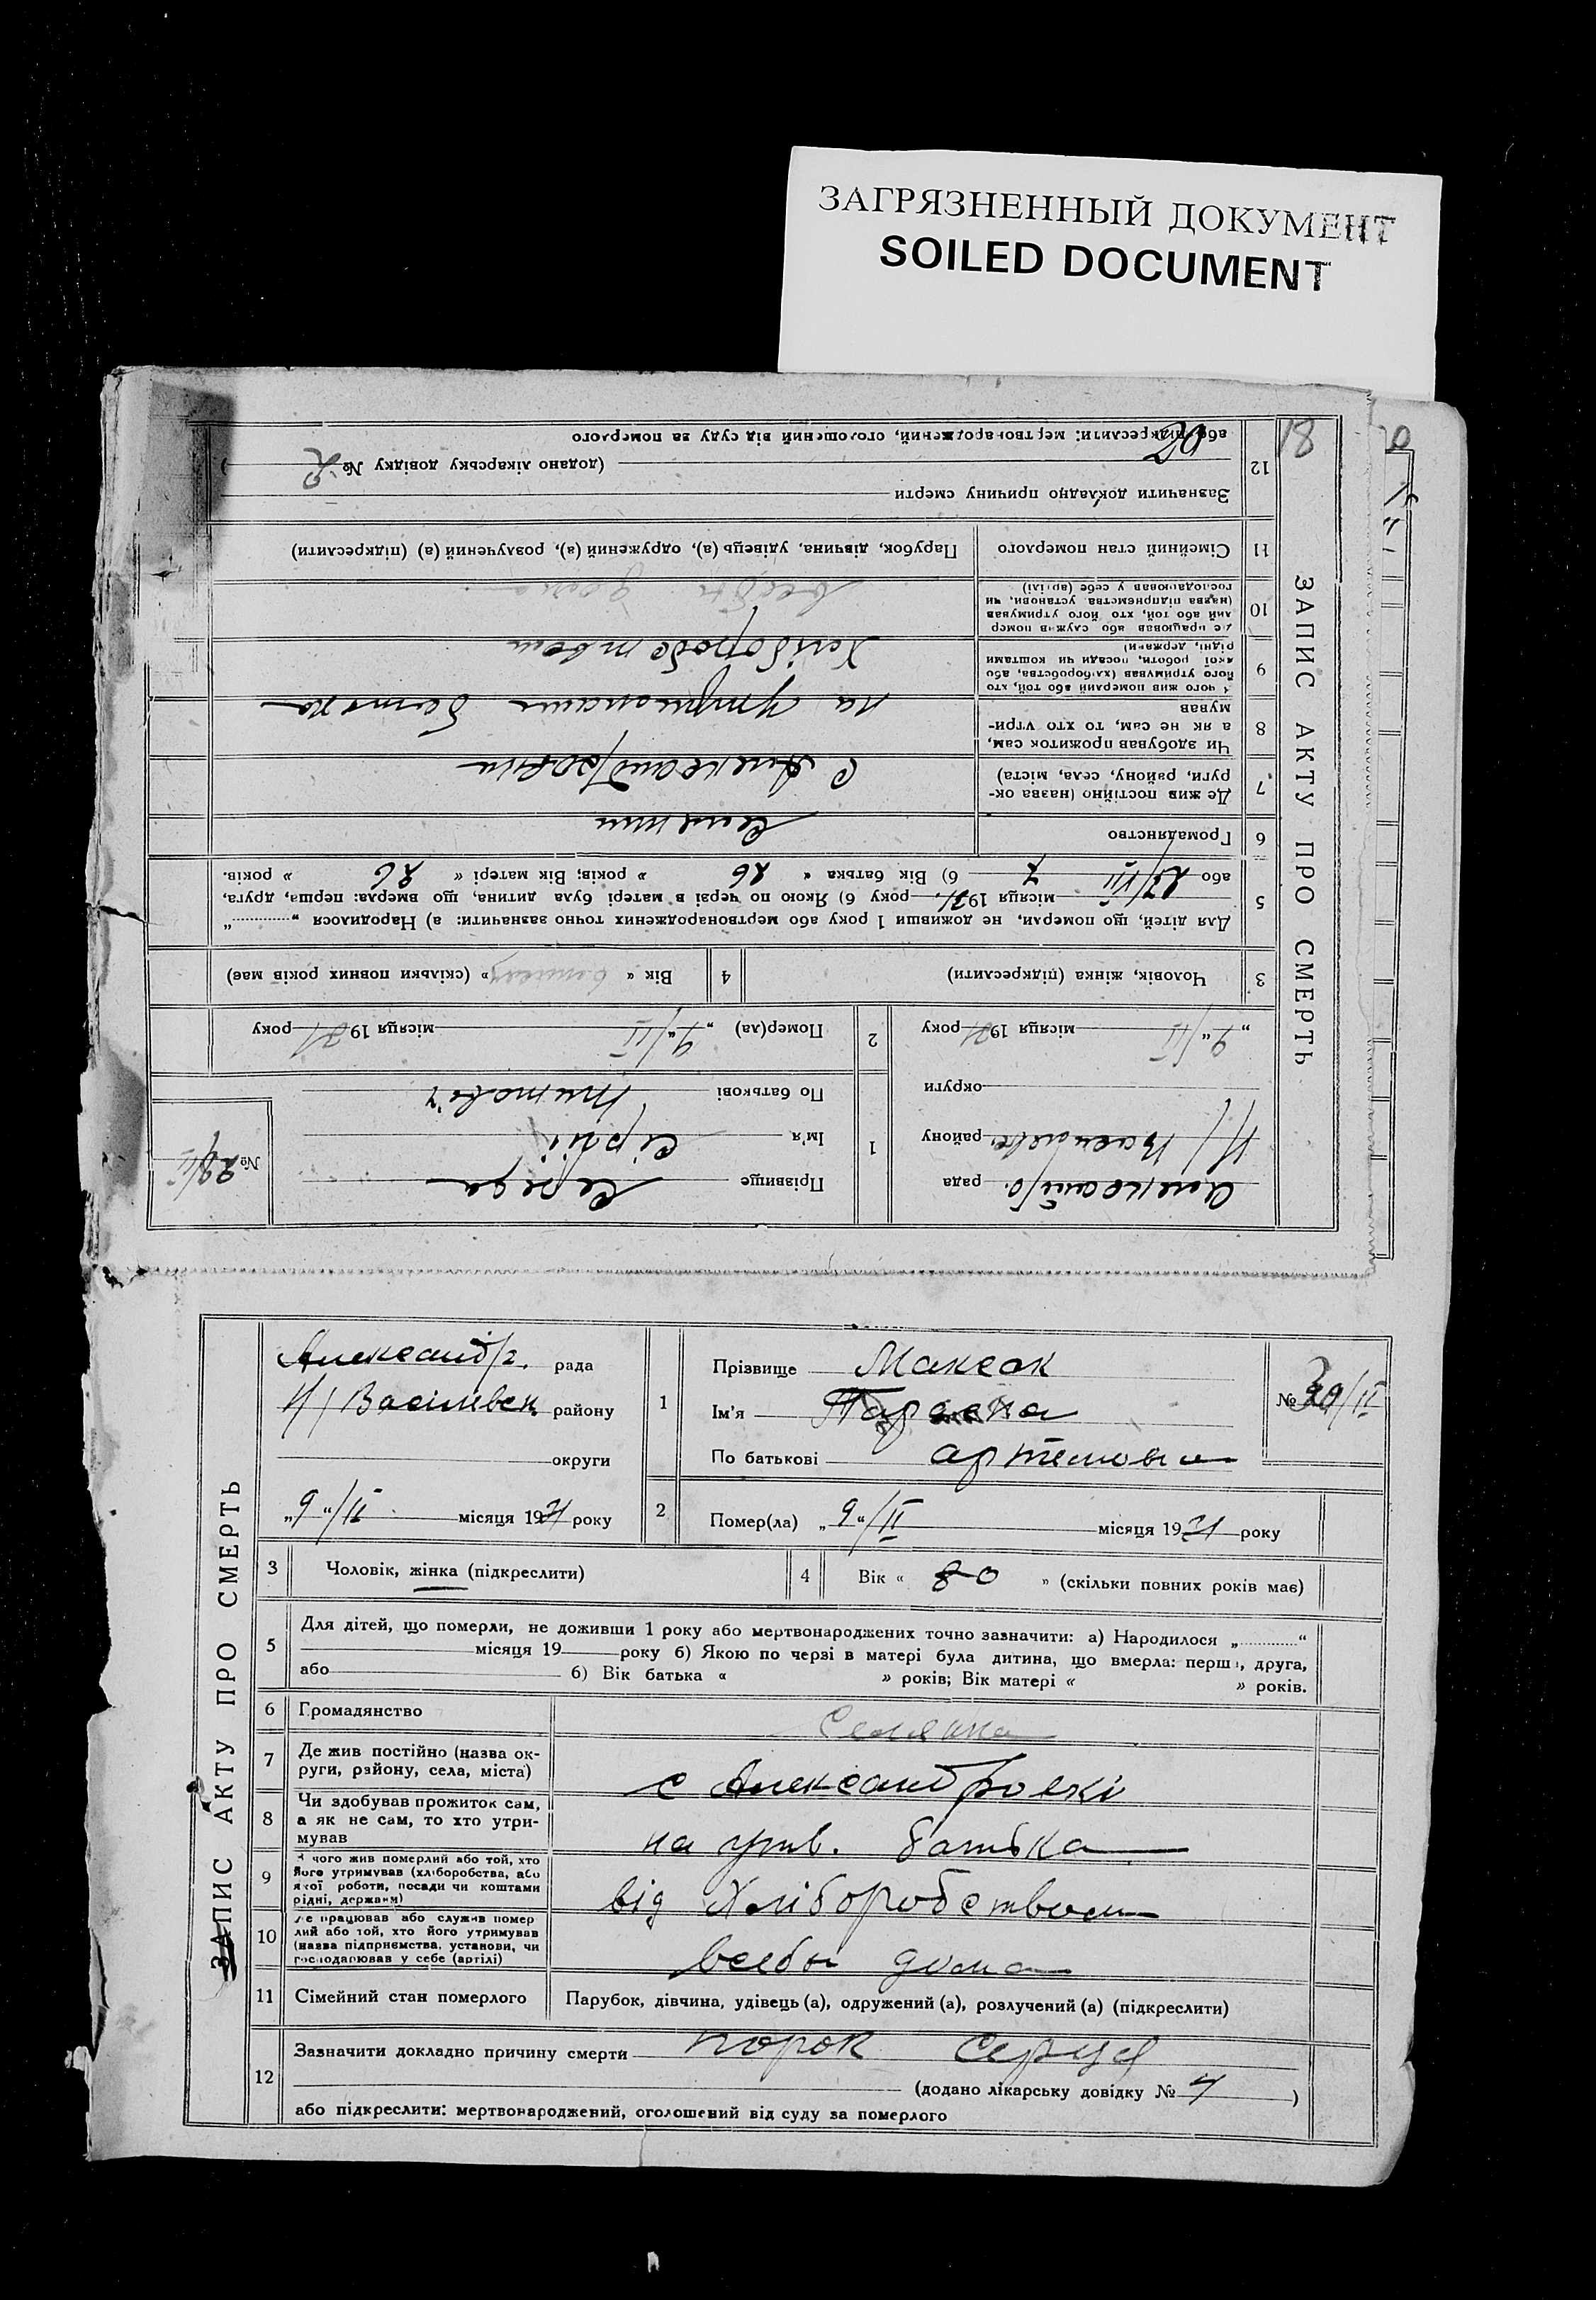 ЗАГРЯЗНЕННЫЙ ДОКУМЕНТ
SOILED DOCUMENT
18
ЗАПИС АКТУ ПРО СМЕРТЬ
рада
району
округи
„9“/II місяця 1931 року
1
Прізвище Середа
Ім'я Сірій
По батькові
№ 29/II
2
Помер(ла) „9“/II місяця 1931 року
3
Чоловік, жінка (підкреслити)
4
Вік « » (скільки повних років має)
5
Для дітей, що померли, не доживши 1 року або мертвонароджених точно зазначити: а) Народилося „
27/VII місяця 193 року б) Якою по черзі в матері була дитина, що вмерла: перша, друга,
або 7 б) Вік батька « 26 » років; Вік матері « 26 » років.
6
Громадянство
7
Де жив постійно (назва ок-
руги, району, села, міста)
с Александровки
8
Чи здобував прожиток сам,
а як не сам, то хто утри-
мував
на батька
9
З чого жив померлий або той, хто
його утримував (хліборобства, або
якої роботи, посади чи коштами
рідні, держави)
Хліборобством
10
Де працював або служив помер
лий або той, хто його утримував
(назва підприємства, установи, чи
господарював у себе (артілі)
дома
11
Сімейний стан померлого
Парубок, дівчина, удівець (а), одружений (а), розлучений (а) (підкреслити)
12
Зазначити докладно причину смерти
(додано лікарську довідку № 2 )
або підкреслити: мертвонароджений, оголошений від суду за померлого
ЗАПИС АКТУ ПРО СМЕРТЬ
Александр. рада
Н/Василівск району
округи
„9“/II місяця 1931 року
1
Прізвище Максак
Ім'я Параска
По батькові артемовна
№ 30/II
2
Помер(ла) „9“/II місяця 1931 року
3
Чоловік, жінка (підкреслити)
4
Вік « 80 » (скільки повних років має)
5
Для дітей, що померли, не доживши 1 року або мертвонароджених точно зазначити: а) Народилося „ “
місяця 19 року б) Якою по черзі в матері була дитина, що вмерла: перша, друга,
або б) Вік батька « » років; Вік матері « » років.
6
Громадянство
Селянка
7
Де жив постійно (назва ок-
руги, району, села, міста)
с Александровкі
8
Чи здобував прожиток сам,
а як не сам, то хто утри-
мував
на утв. батька
9
З чого жив померлий або той, хто
його утримував (хліборобства, або
якої роботи, посади чи коштами
рідні, держави)
від Хліборобством
10
Де працював або служив помер
лий або той, хто його утримував
(назва підприємства, установи, чи
господарював у себе (артілі)
дома
11
Сімейний стан померлого
Парубок, дівчина, удівець (а), одружений (а), розлучений (а) (підкреслити)
12
Зазначити докладно причину смерти порок серця
(додано лікарську довідку № 4 )
або підкреслити: мертвонароджений, оголошений від суду за померлого